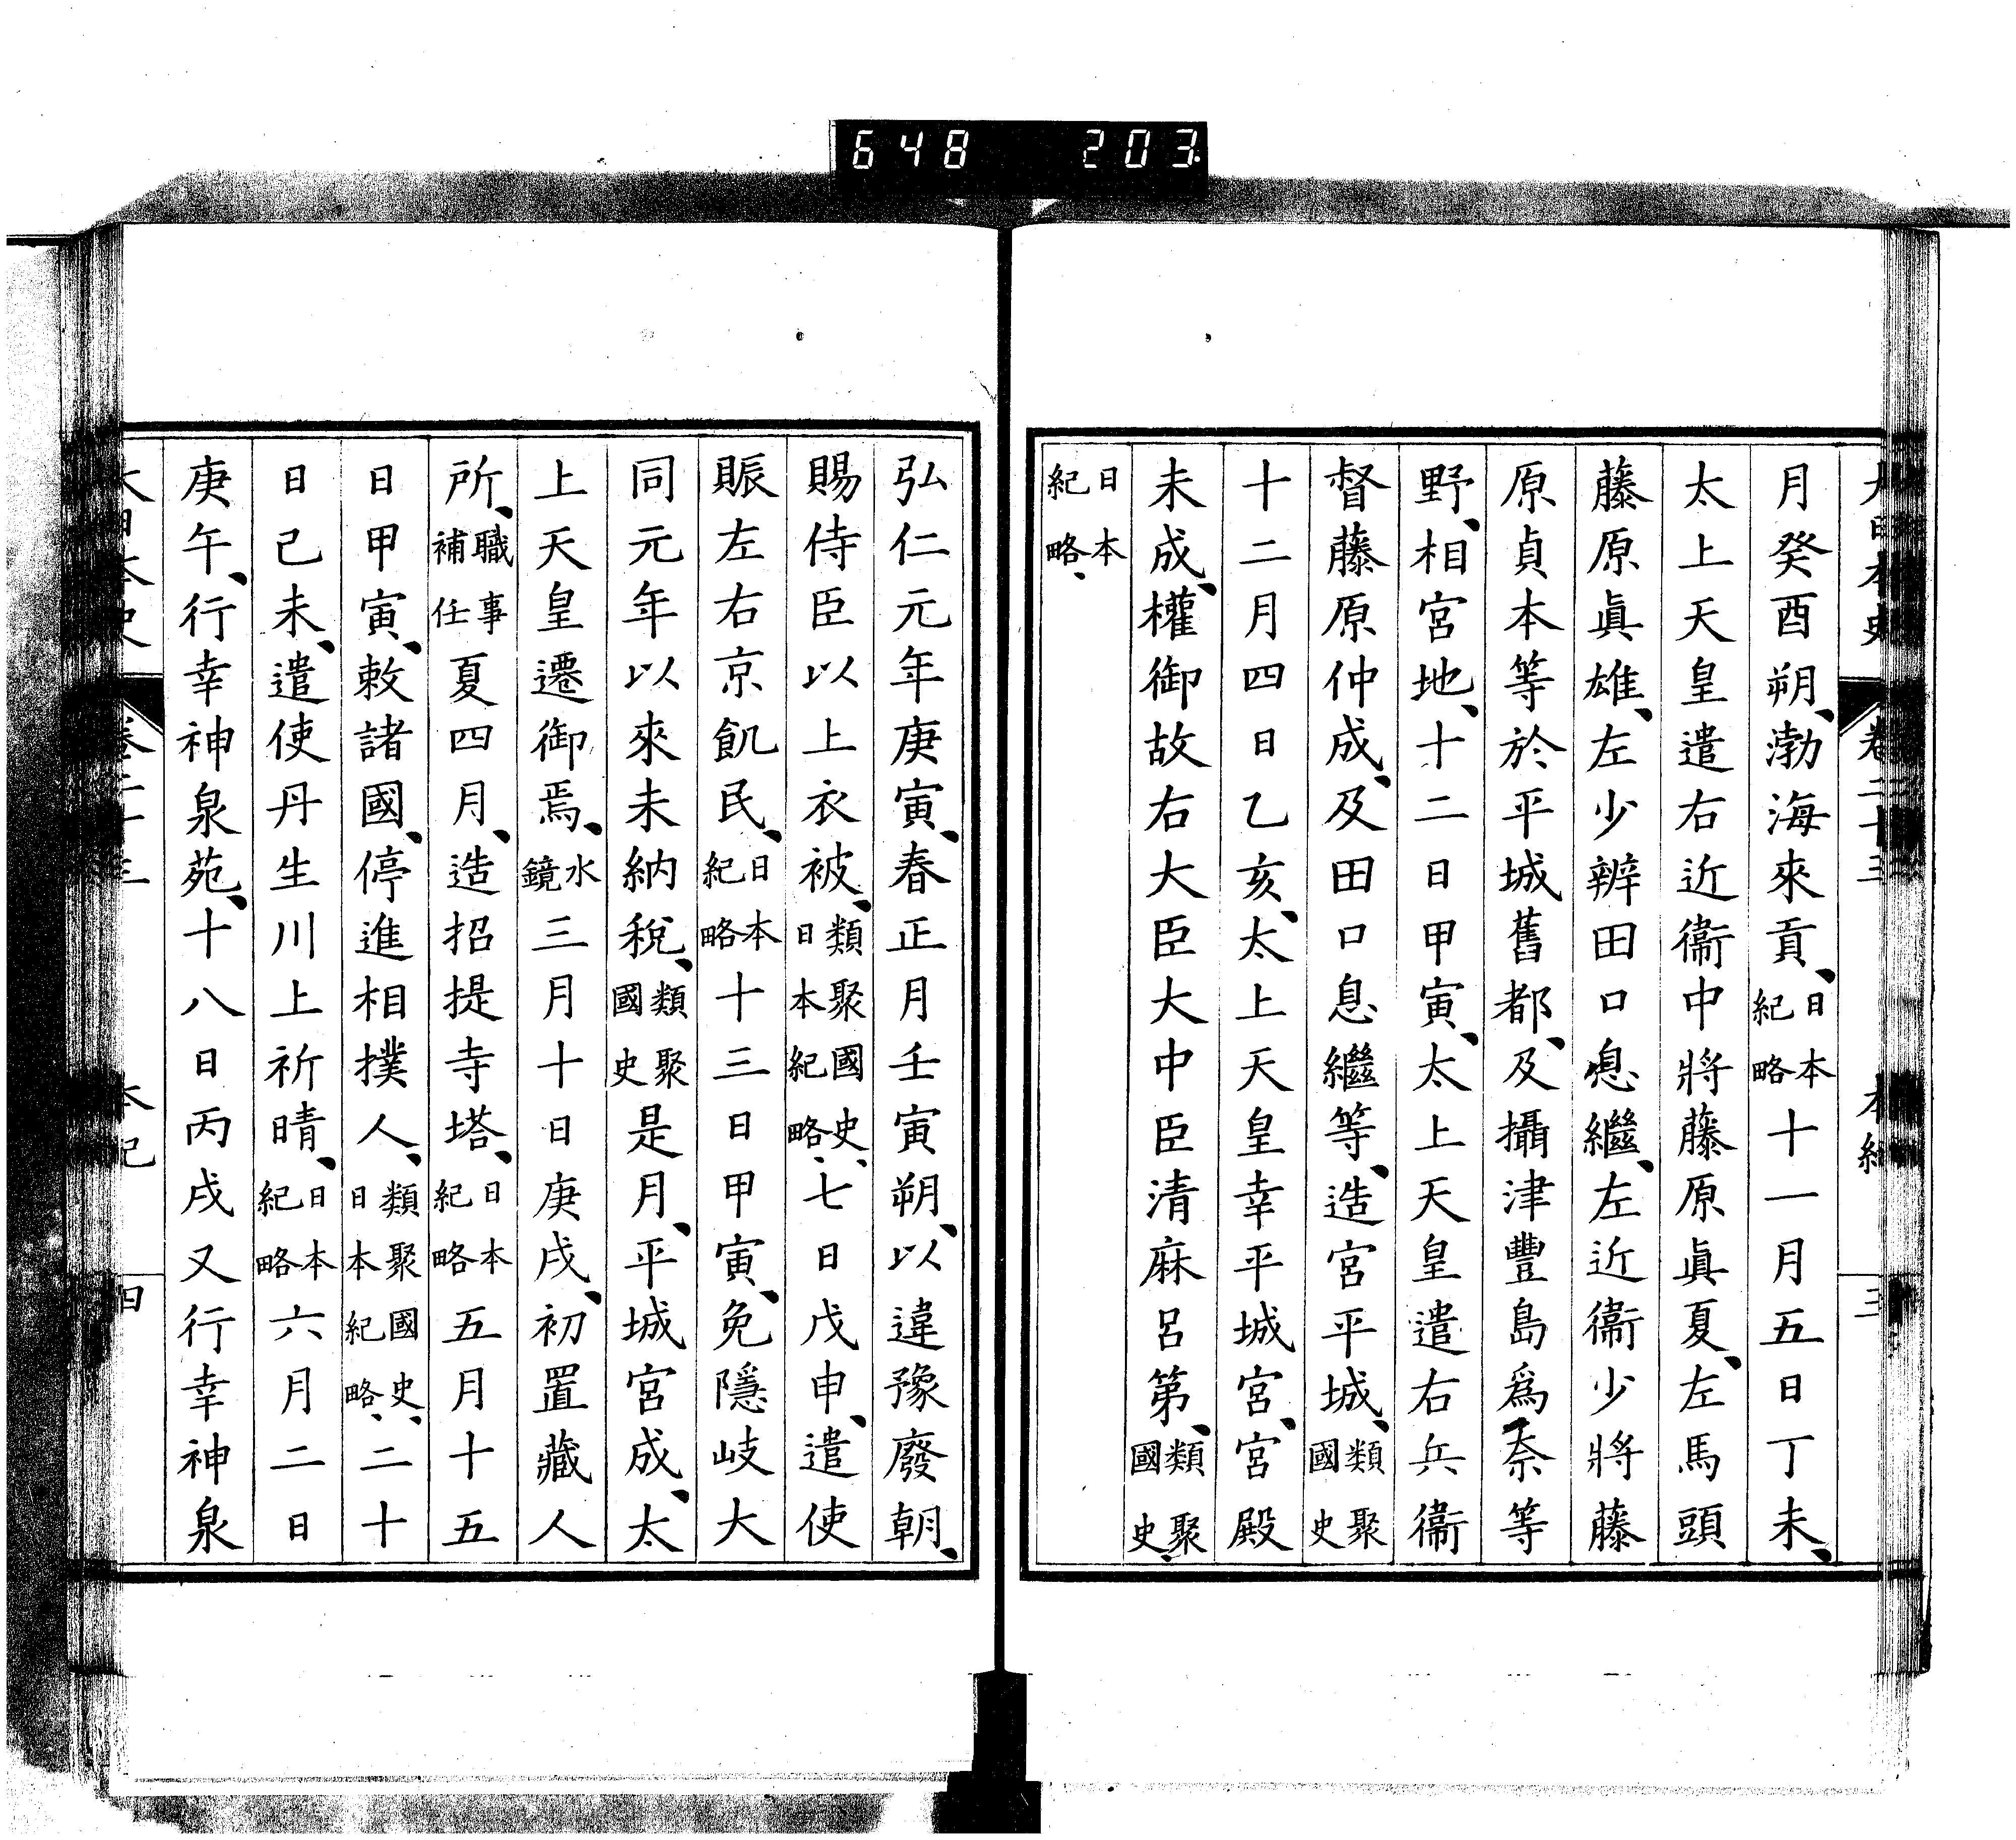 648 203
大日本史 卷二十三 本紀 三
月癸酉朔、渤海來貢、日本紀略十一月五日丁未、
太上天皇遣右近衞中將藤原眞夏、左馬頭
藤原眞雄、左少辨田口息繼、左近衞少將藤
原貞本等於平城舊都、及攝津豐島爲奈等
野、相宮地、十二日甲寅、太上天皇遣右兵衞
督藤原仲成、及田口息繼等、造宮平城、類聚國史
十二月四日乙亥、太上天皇幸平城宮、宮殿
未成、權御故右大臣大中臣清麻呂第、類聚國史、
日本紀略、
弘仁元年庚寅、春正月壬寅朔、以違豫廢朝、
賜侍臣以上衣被、類聚國史、日本紀略、七日戊申、遣使
賑左右京飢民、日本紀略十三日甲寅、免隱岐大
同元年以來未納稅、類聚國史是月、平城宮成、太
上天皇遷御焉、水鏡三月十日庚戌、初置藏人
所、職事補任夏四月、造招提寺塔、日本紀略五月十五
日甲寅、敕諸國、停進相撲人、類聚國史、日本紀略、二十
日己未、遣使丹生川上祈晴、日本紀略六月二日
庚午、行幸神泉苑、十八日丙戌又行幸神泉
大日本史 卷二十三 本紀 四